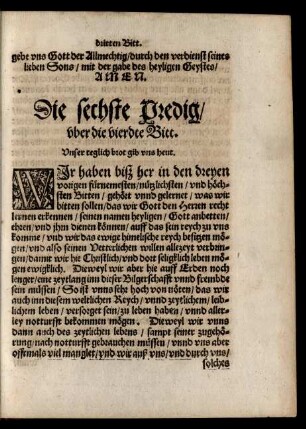 dritten Bitt.
gebe vns Gott der Allmechtig/durch den verdienst seines
lieben Sons/ mit der gabe des heyligen Geystes/
AMEN.
Die sechste Predig/
vber die vierdte Bitt.
Vnser teglich brot gib vns heut.
WIr haben biß her in den dreyen
vorigen fürnemesten/nützlichsten/ vnd höch-
sten Bitten/ gehört vnnd gelernet/ was wir
bitten sollen/das wir Gott den Herren recht
lernen erkennen/ seinen namen heyligen/ Gott anbetten/
ehren/ vnd jhm dienen können/ auff das sein reych zu vns
komme/ vnd wir das ewige himelische reych besitzen mö-
gen/vnd also seinen Vetterlichen willen allzeyt verbrin-
gen/damit wir hie Christlich/vnd dort seligklich leben mö-
gen ewigklich. Dieweyl wir aber hie auff Erden noch
lenger/eine zeytlang inn dieser Bilgerschafft vnnd frembde
sein müssen/ So ist vnns sehr hoch von nöten/das wir
auch inn diesem weltlichen Reych/ vnnd zeytlichem/ leib-
lichem leben/ versorget sein/zu leben haben/ vnnd aller-
ley notturfft bekommen mögen. Dieweyl wir vnns
dann auch des zeytlichen lebens/ sampt seiner zugehö-
rung/nach notturfft gebrauchen müssen/ vnnd vns aber
offtmals viel manglet/vnd wir auß vns/vnd durch vns/
solches